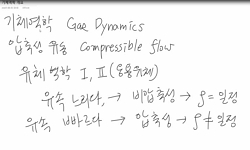 기체역학 Gas Dynamics
압축성 유동 Compressible flow
유체 역학 I, II (응용유체)
유속 느리다, → 비압축성 → ρ = 일정
유속 빠르다 → 압축성 → ρ ≠ 일정